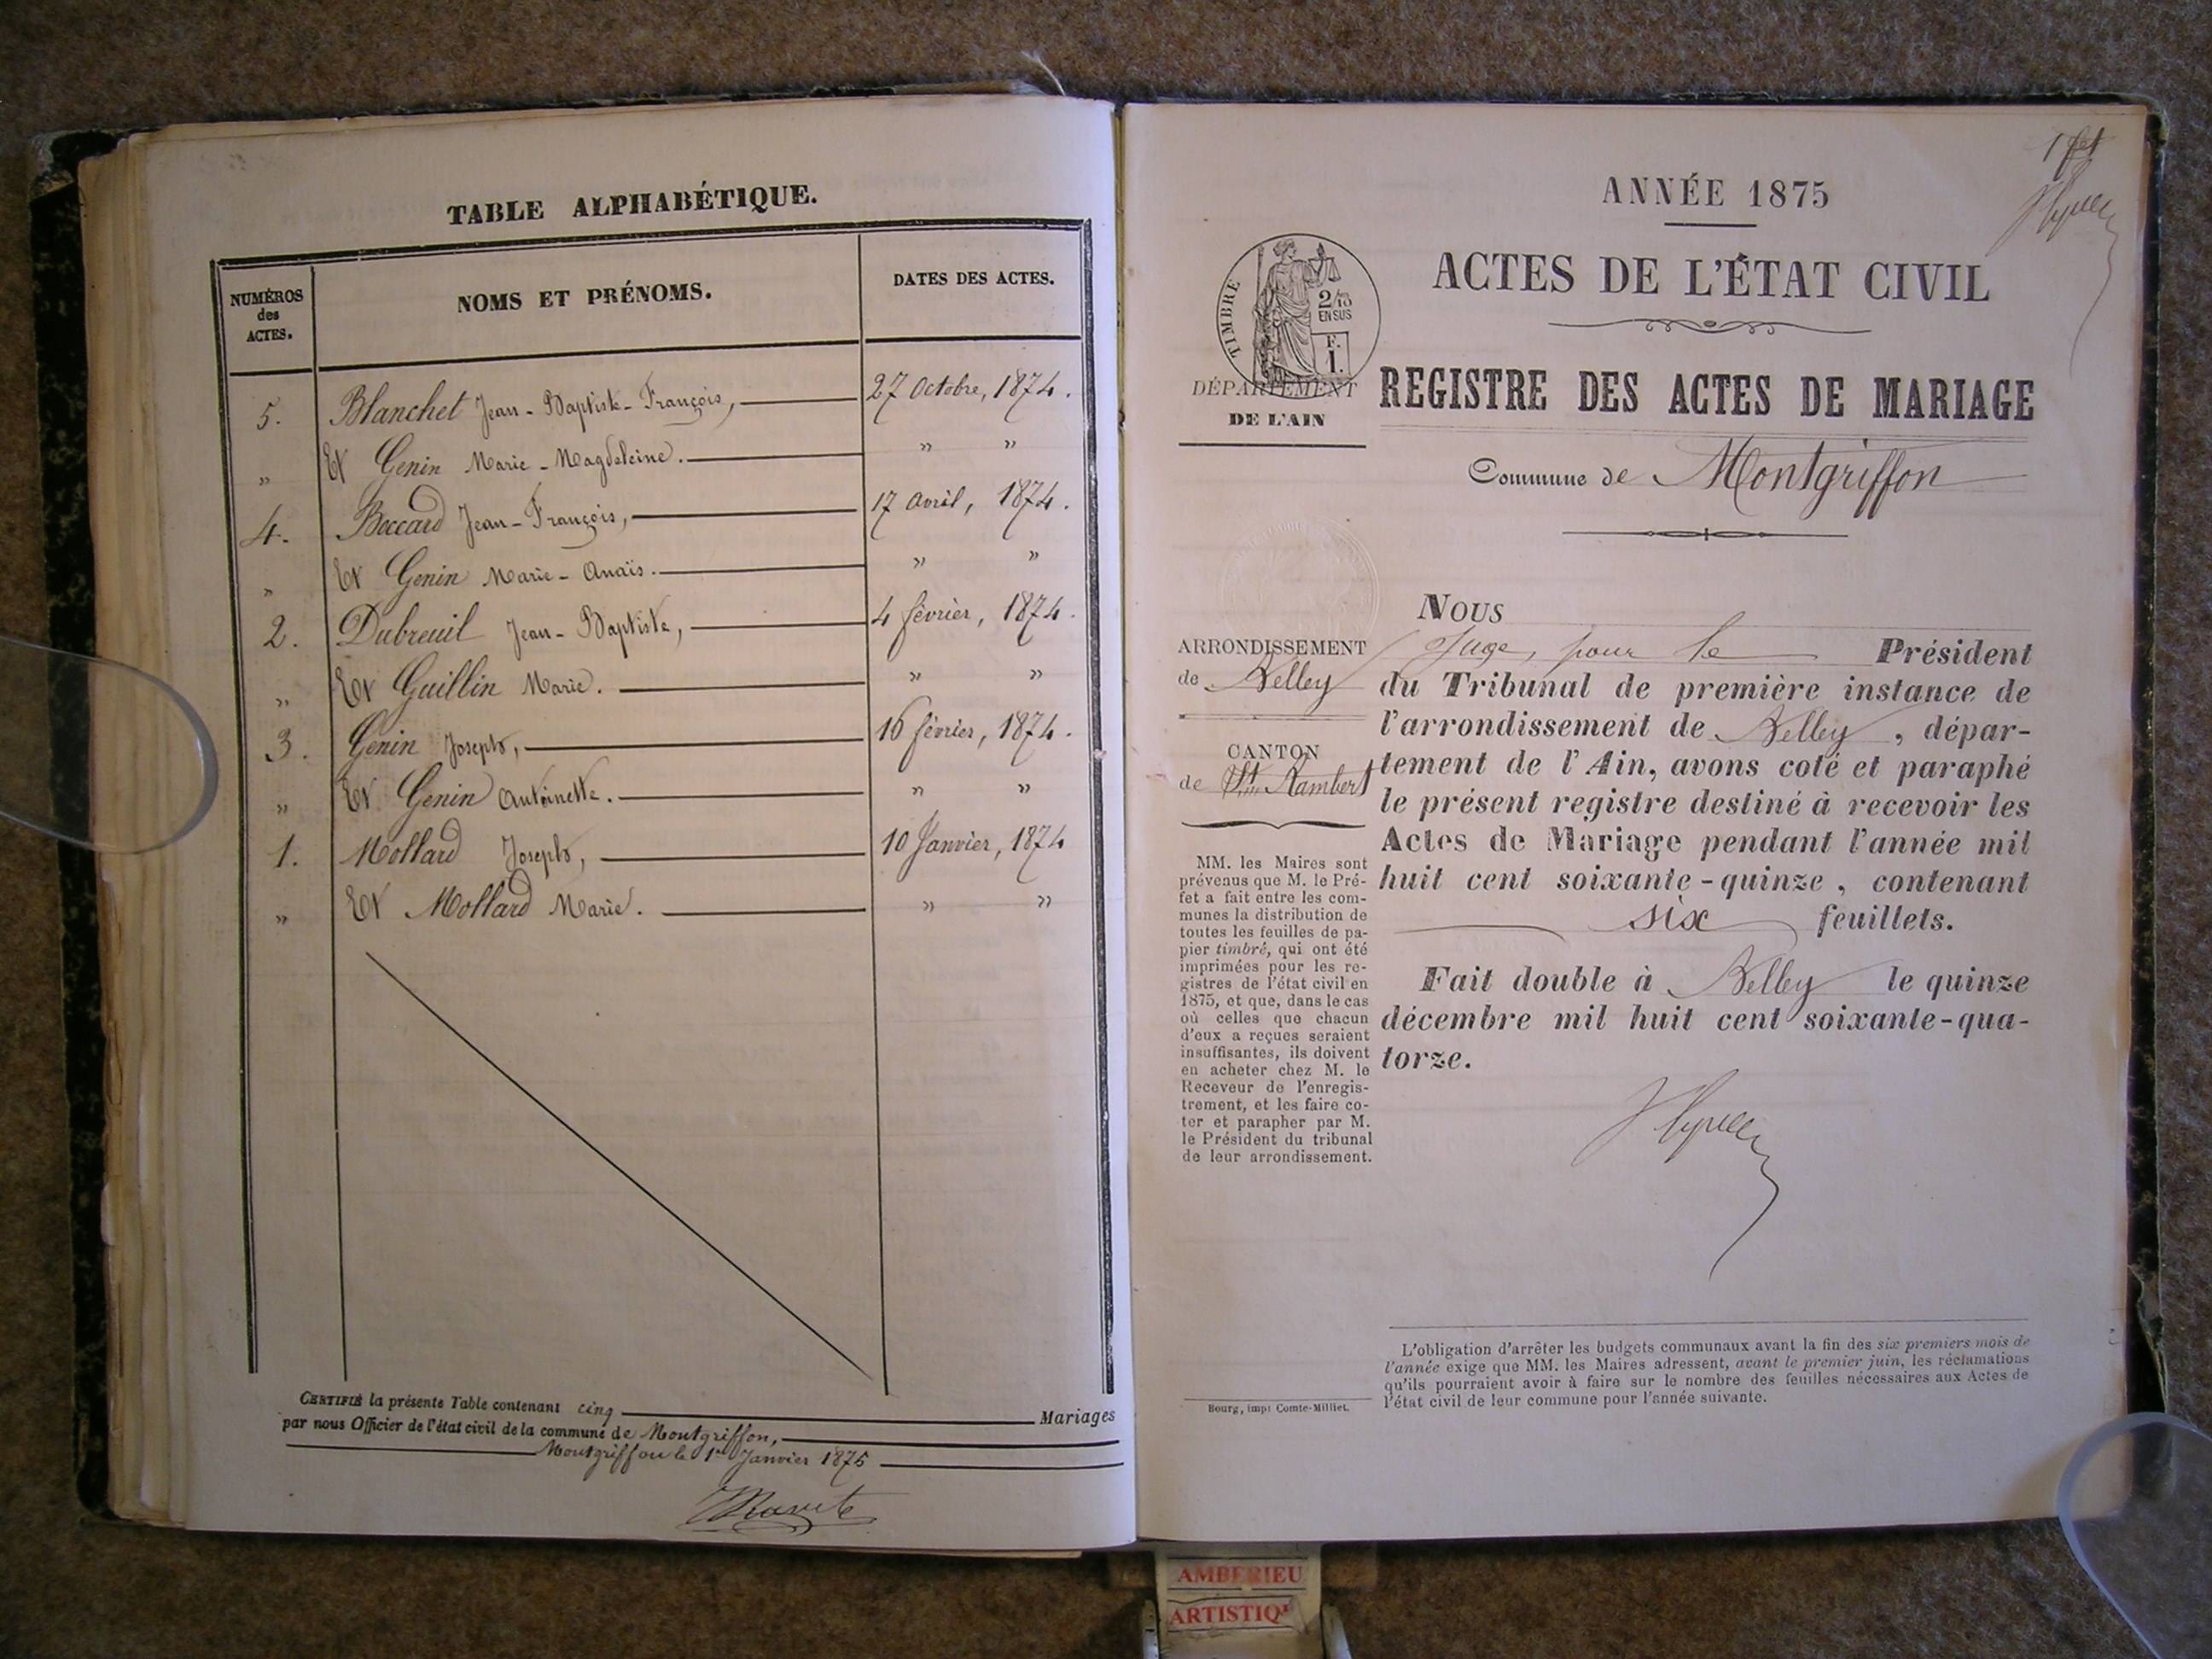 TABLE ALPHABÉTIQUE.
NUMÉROS des ACTES.
NOMS ET PRÉNOMS.
DATES DES ACTES.
5. Blanchet Jean-Baptiste-François, 27 Octobre, 1874.
" Et Genin Marie-Magdeleine. " "
4. Boccard Jean-François, 17 avril, 1874.
" Et Genin Marie-Anaïs. " "
2. Dubreuil Jean-Baptiste, 4 février, 1874.
" Et Guillin Marie. " "
3. Genin Joseph, 16 février, 1874.
" Et Genin Antoinette. " "
1. Mollard Joseph, 10 Janvier, 1874
" Et Mollard Marie. " "
CERTIFIÉ la présente Table contenant cinq Mariages
par nous Officier de l'état civil de la commune de Montgriffon,
Montgriffon le 1er Janvier 1875
ANNÉE 1875
ACTES DE L'ÉTAT CIVIL
TIMBRE
2/10
EN SUS
F.
1.
DÉPARTEMENT
DE L'AIN
REGISTRE DES ACTES DE MARIAGE
Commune de Montgriffon
ARRONDISSEMENT
de Belley
CANTON
de St Rambert
MM. les Maires sont
prévenus que M. le Pré-
fet a fait entre les com-
munes la distribution de
toutes les feuilles de pa-
pier timbré, qui ont été
imprimées pour les re-
gistres de l'état civil en
1875, et que, dans le cas
où celles que chacun
d'eux a reçues seraient
insuffisantes, ils doivent
en acheter chez M. le
Receveur de l'enregis-
trement, et les faire co-
ter et parapher par M.
le Président du tribunal
de leur arrondissement.
Bourg, imp. Comte-Milliet.
NOUS
Juge, pour le Président
du Tribunal de première instance de
l'arrondissement de Belley, dépar-
tement de l'Ain, avons coté et paraphé
le présent registre destiné à recevoir les
Actes de Mariage pendant l'année mil
huit cent soixante-quinze, contenant
six feuillets.
Fait double à Belley le quinze
décembre mil huit cent soixante-qua-
torze.
L'obligation d'arrêter les budgets communaux avant la fin des six premiers mois de
l'année exige que MM. les Maires adressent, avant le premier juin, les réclamations
qu'ils pourraient avoir à faire sur le nombre des feuilles nécessaires aux Actes de
l'état civil de leur commune pour l'année suivante.
AMBERIEU
ARTISTIQ